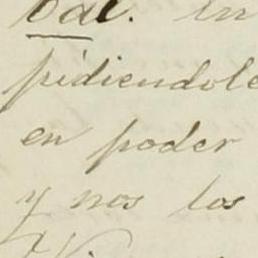 bal. en
pidiendole
en poder
y nos los